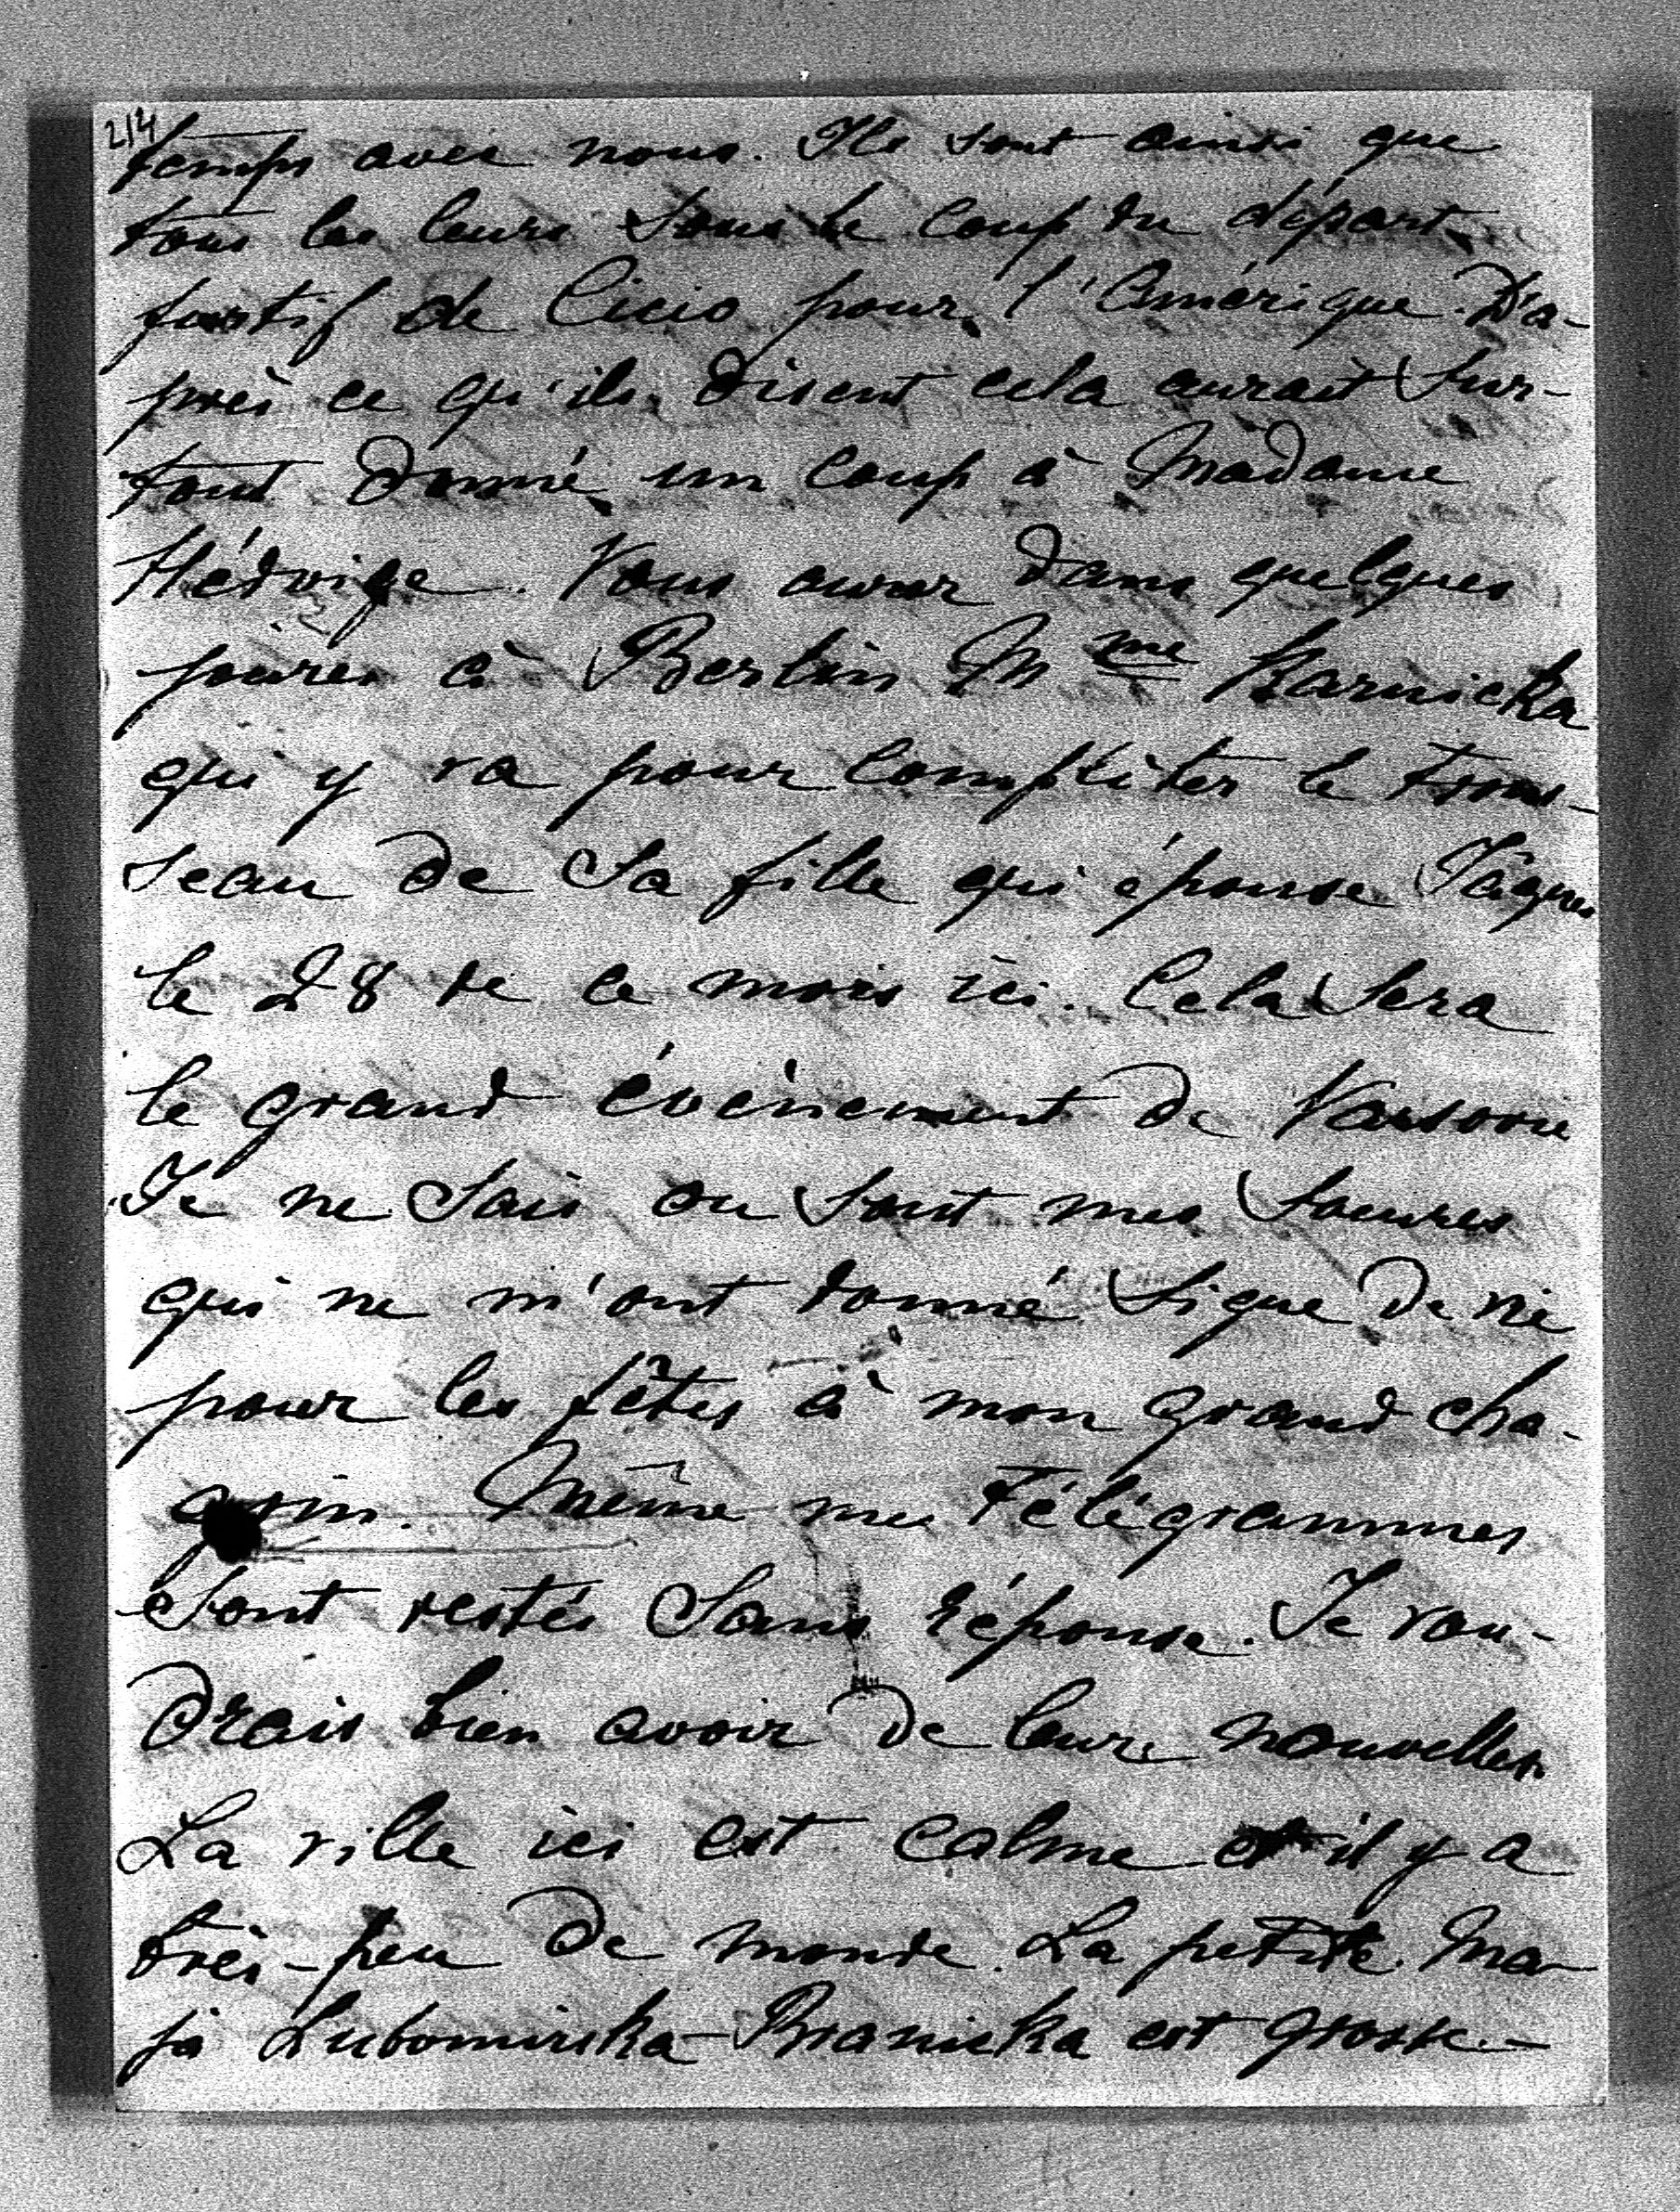 214
temps avec nous. Ils sont ainsi que
tous les leurs sous le coup du départ
furtif de Cicio pour l'Amérique. D'a-
près ce qu'ils disent cela aurait sur-
tout donné un coup à Madame
Hedvige. Vous aurez dans quelques
jours à Berlin Mme Karnicka
qui y va pour compléter le trous-
seau de sa fille qui épouse
le 28 de ce mois ici. Cela sera
le grand évènement de Varsovie
Je ne sais ou sont mes soeures
qui ne m'ont donné signe de vie
pour les fêtes à mon grand cha-
grin. Même mes télégrammes
sont restés sans réponse. Je vou-
drais bien avoir de leurs nouvelles.
La ville ici est calme et il y a
très-peu de monde. La petite Ma-
ja Lubomirska-Branicka est grosse.-